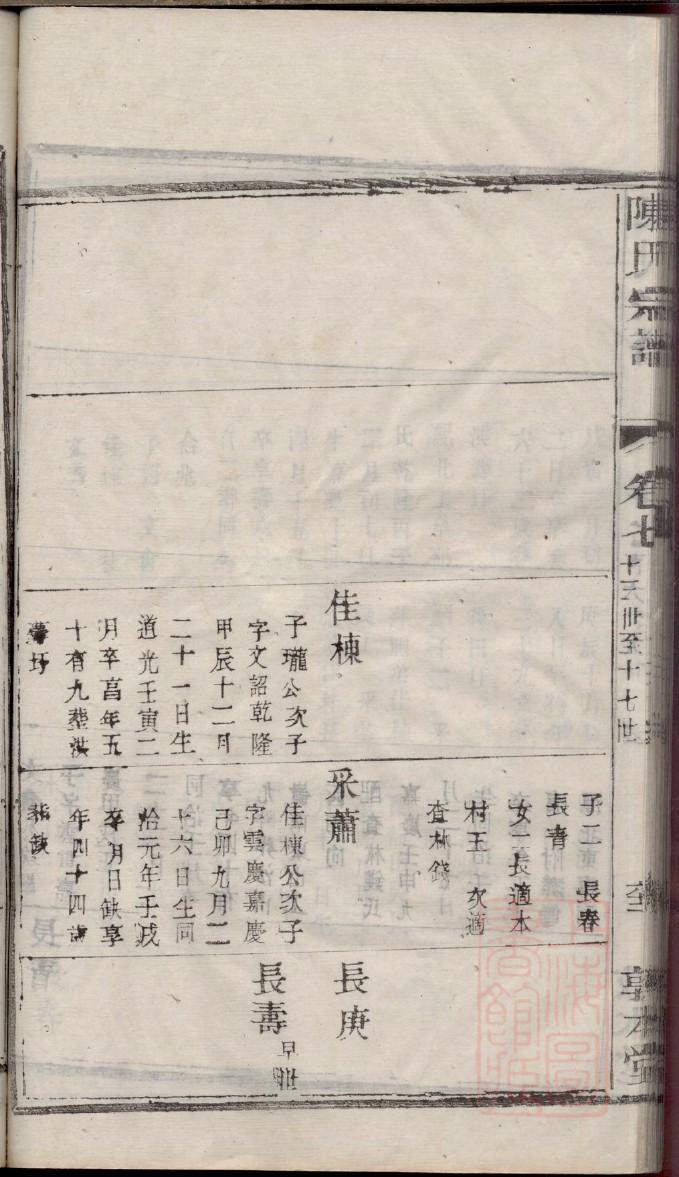 陳氏宗譜
卷七
十三世至十七世
敦本堂
佳棟
子瓏公次子
字文詔乾隆
甲辰十二月
二十一日生
道光壬寅二
月卒享年五
十有九葬洪
子二 長春
長青
女二長適本
村王 次適
查林錢
采蕭
佳棟公次子
字雲慶嘉慶
己卯九月二
十六日生同
治元年壬戌
卒月日缺享
年四十四歲
葬缺
長庚
長壽 早世